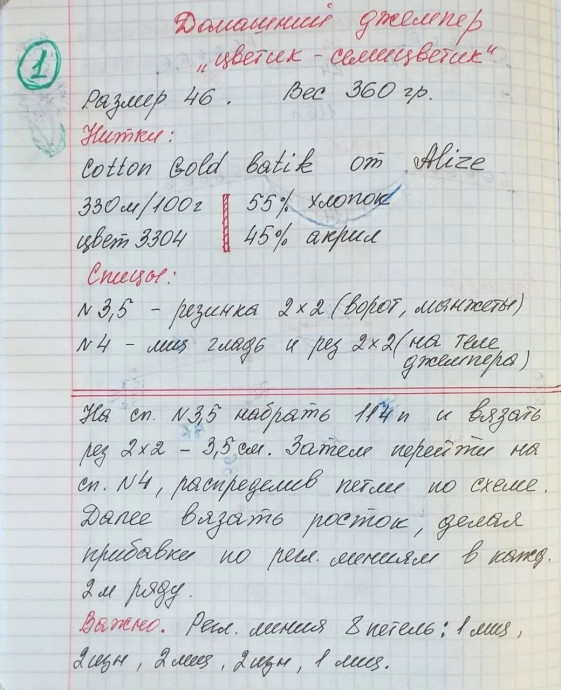 1
Домашний джемпер
„цветик - семицветик"
Размер 46. Вес 360 гр.
Нитки:
Cotton Gold batik от Alize
330м/100г 55% хлопок
цвет 3304 45% акрил
Спицы:
N 3,5 - резинка 2×2 (ворот, манжеты)
N4 - лиц гладь и рез 2×2 (на теле
джемпера)
На сп. N3,5 набрать 114п и вязать
рез 2×2 - 3,5 см. Затем перейти на
сп. N4, распределив петли по схеме.
Далее вязать росток, делая
прибавки по регл. линиям в кажд.
2м ряду.
Важно. Регл. линия 8 петель: 1 лиц,
2изн, 2 лиц, 2изн, 1 лиц.